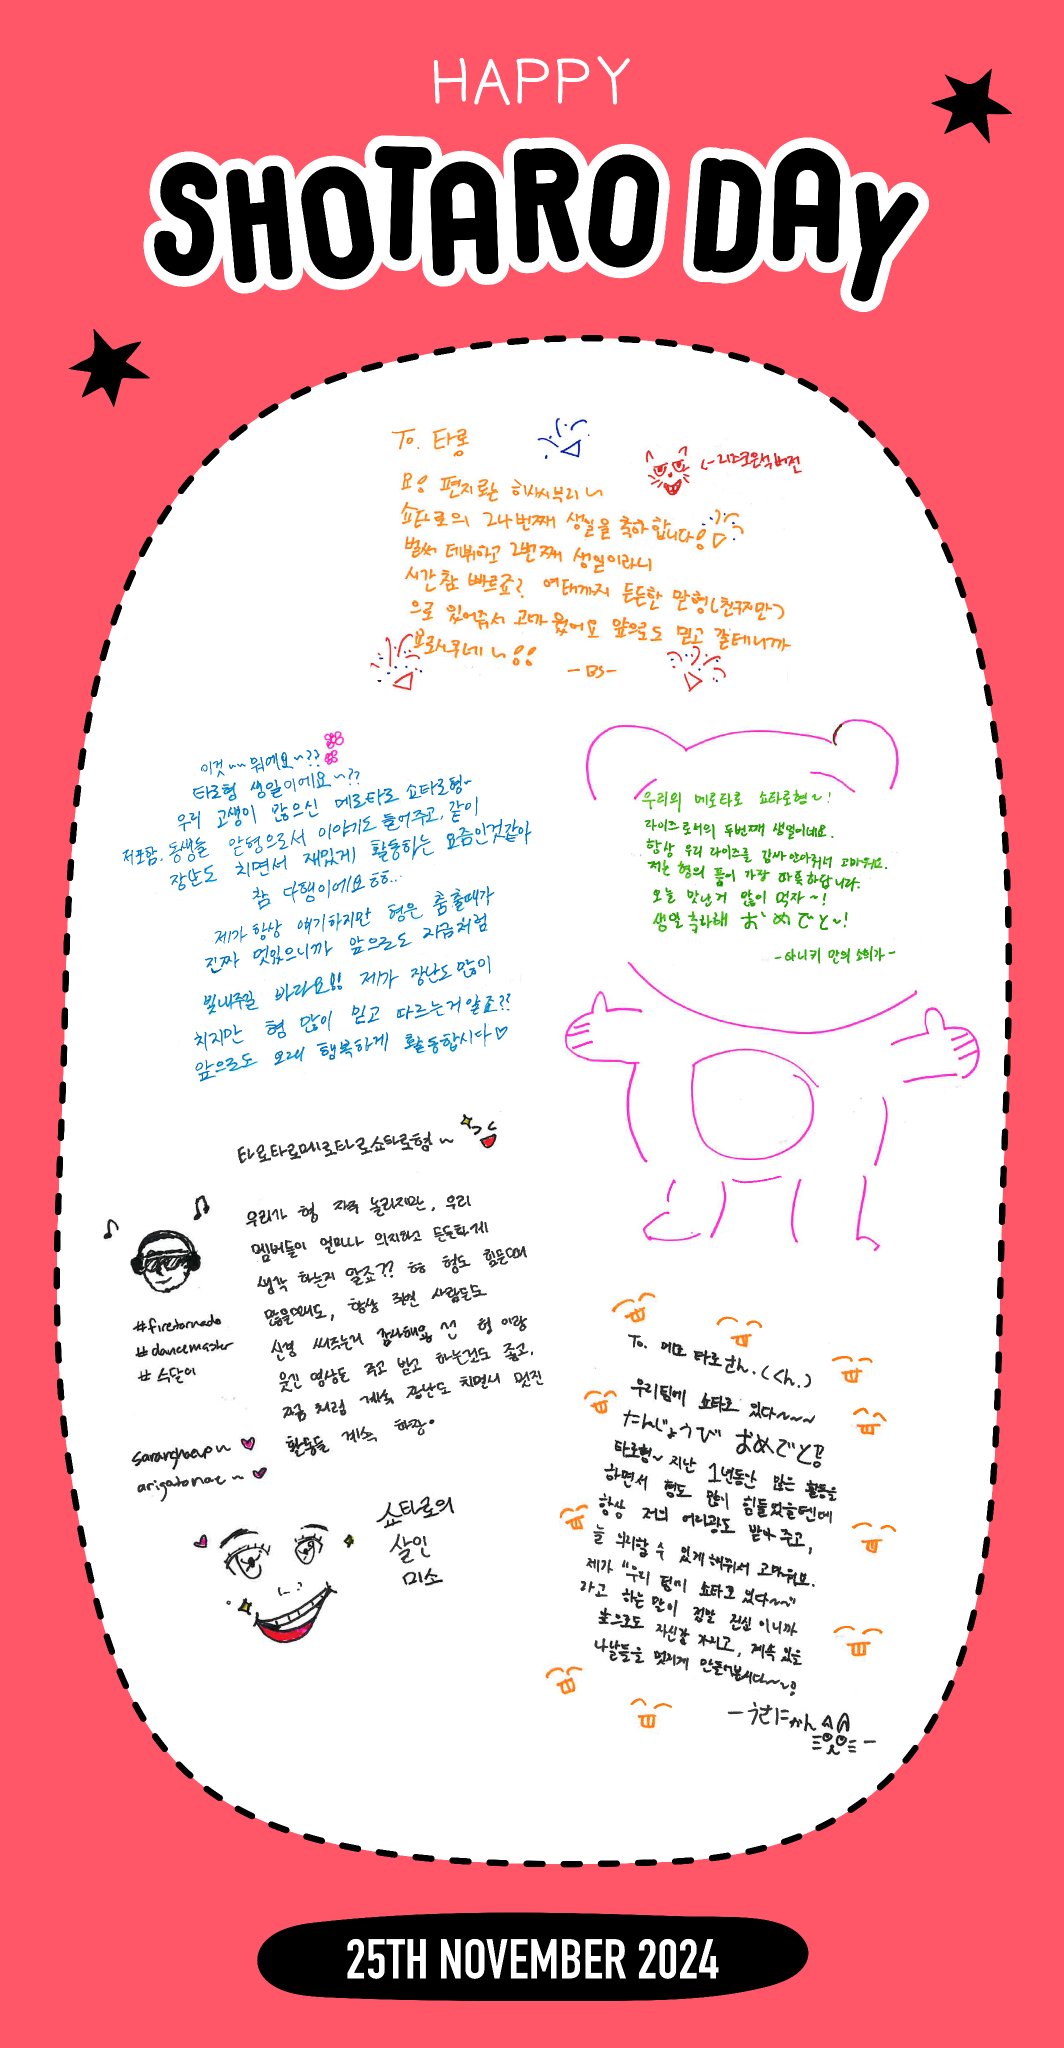 HAPPY
SHOTARO DAY
To. 타롱
<-리즈크원빈버전
요! 편지로는 히사시부리~
쇼타로의 24번째 생일을 축하합니다!
벌써 데뷔하고 2번째 생일이라니
시간 참 빠르죠? 여태까지 든든한 맏형(친구지만)
으로 있어줘서 고마웠어요 앞으로도 믿고 갈테니까
요로시쿠네~!!
-BS-
이것~~ 뭐예요~??
타로형 생일이에요~??
우리 고생이 많으신 메로타로 쇼타로형~
저포함, 동생들 맏형으로서 이야기도 들어주고, 같이
장난도 치면서 재밌게 활동하는 요즘인것같아
참 다행이에요 ㅎㅎ...
제가 항상 얘기하지만 형은 춤출때가
진짜 멋있으니까 앞으로도 지금처럼
빛내주길 바라요!! 제가 장난도 많이
치지만 형 많이 믿고 따르는거 알죠??
앞으로도 오래 행복하게 활동합시다♡
우리의 메로타로 쇼타로형~!
라이즈로서의 두번째 생일이네요.
항상 우리 라이즈를 감싸안아줘서 고마워요.
저는 형의 품이 가장 따뜻하답니다.
오늘 맛난거 많이 먹자~!
생일 축하해 おめでと~!
-아니키 만의 소희가-
타로타로메로타로쇼타로형~
우리가 형 자주 놀리지만, 우리
멤버들이 얼마나 의지하고 든든하게
생각 하는지 알죠?? ㅎㅎ 형도 힘든때
많을땐데도, 항상 주변 사람들도
신경 써주는거 감사해요 형 이랑
웃긴 영상들 주고 받고 하는것도 좋고,
지금 처럼 계속 장난도 치면서 멋진
활동들 계속 하장~
#firetornado
#dancemaster
#수달이
saranghaeyo~♥
arigatonae~♥
쇼타로의
살인
미소
To. 메로 타로さん.(くん.)
우리팀에 쇼타로 있다~~~~
たんじょうび おめでと!
타로형~ 지난 1년동안 많은 활동을
하면서 형도 많이 힘들었을텐데
항상 저의 어리광도 받아 주고,
늘 의지할 수 있게 해줘서 고마워요.
제가 "우리 팀에 쇼타로 있다~~"
라고 하는 말이 정말 진심 이니까
앞으로도 자신감 가지고, 계속 있을
나날들을 멋지게 만들어봅시다~~!
25TH NOVEMBER 2024